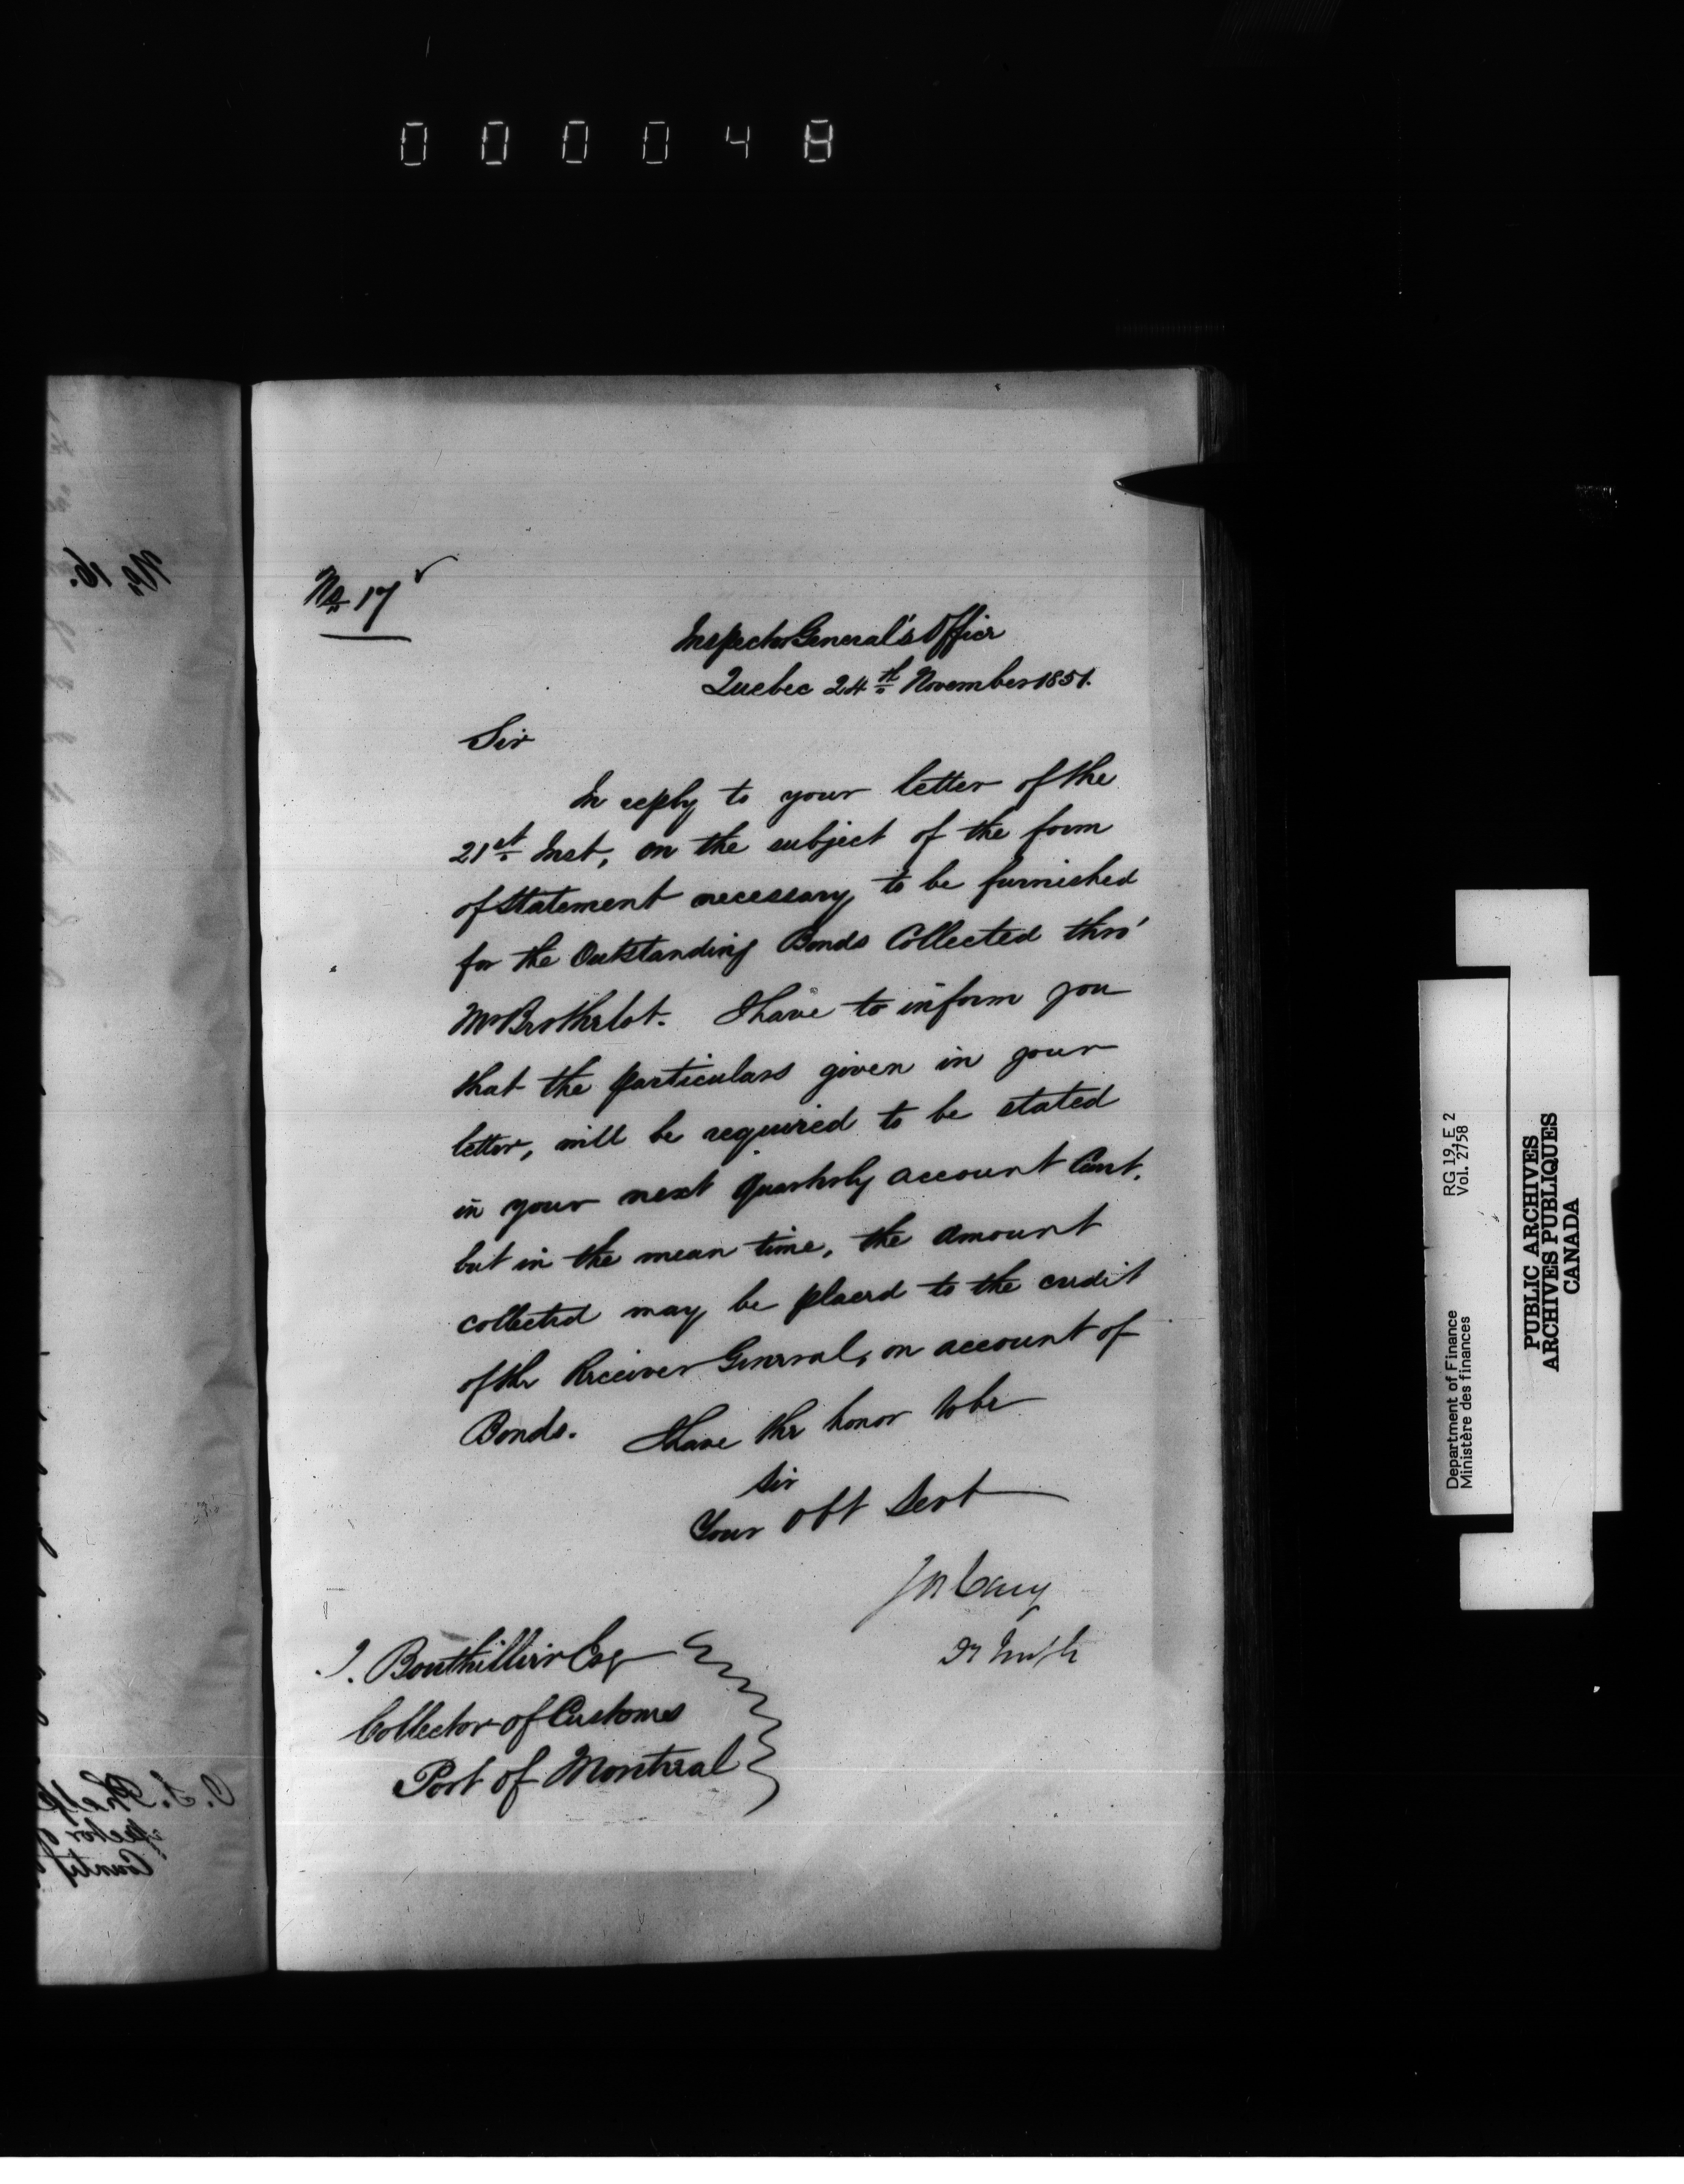 000048
No. 17
Inspector General's Office
Quebec 24th November 1851.
Sir
In reply to your letter of the
21st Inst, on the subject of the form
of statement necessary to be furnished
for the Outstanding Bonds Collected thro'
Mr Brothelot. I have to inform you
that the particulars given in your
letter, will be required to be stated
in your next Quarterly account Curt.
but in the mean time, the amount
collected may be placed to the credit
of the Receiver General, on account of
Bonds. I have the honor to be
Sir
Your Obt Servt
J Bouthillier Esq
Collector of Customs
Port of Montreal
No. 16.
RG 19, E 2
Vol. 2758
Department of Finance
Ministère des finances
PUBLIC ARCHIVES
ARCHIVES PUBLIQUES
CANADA